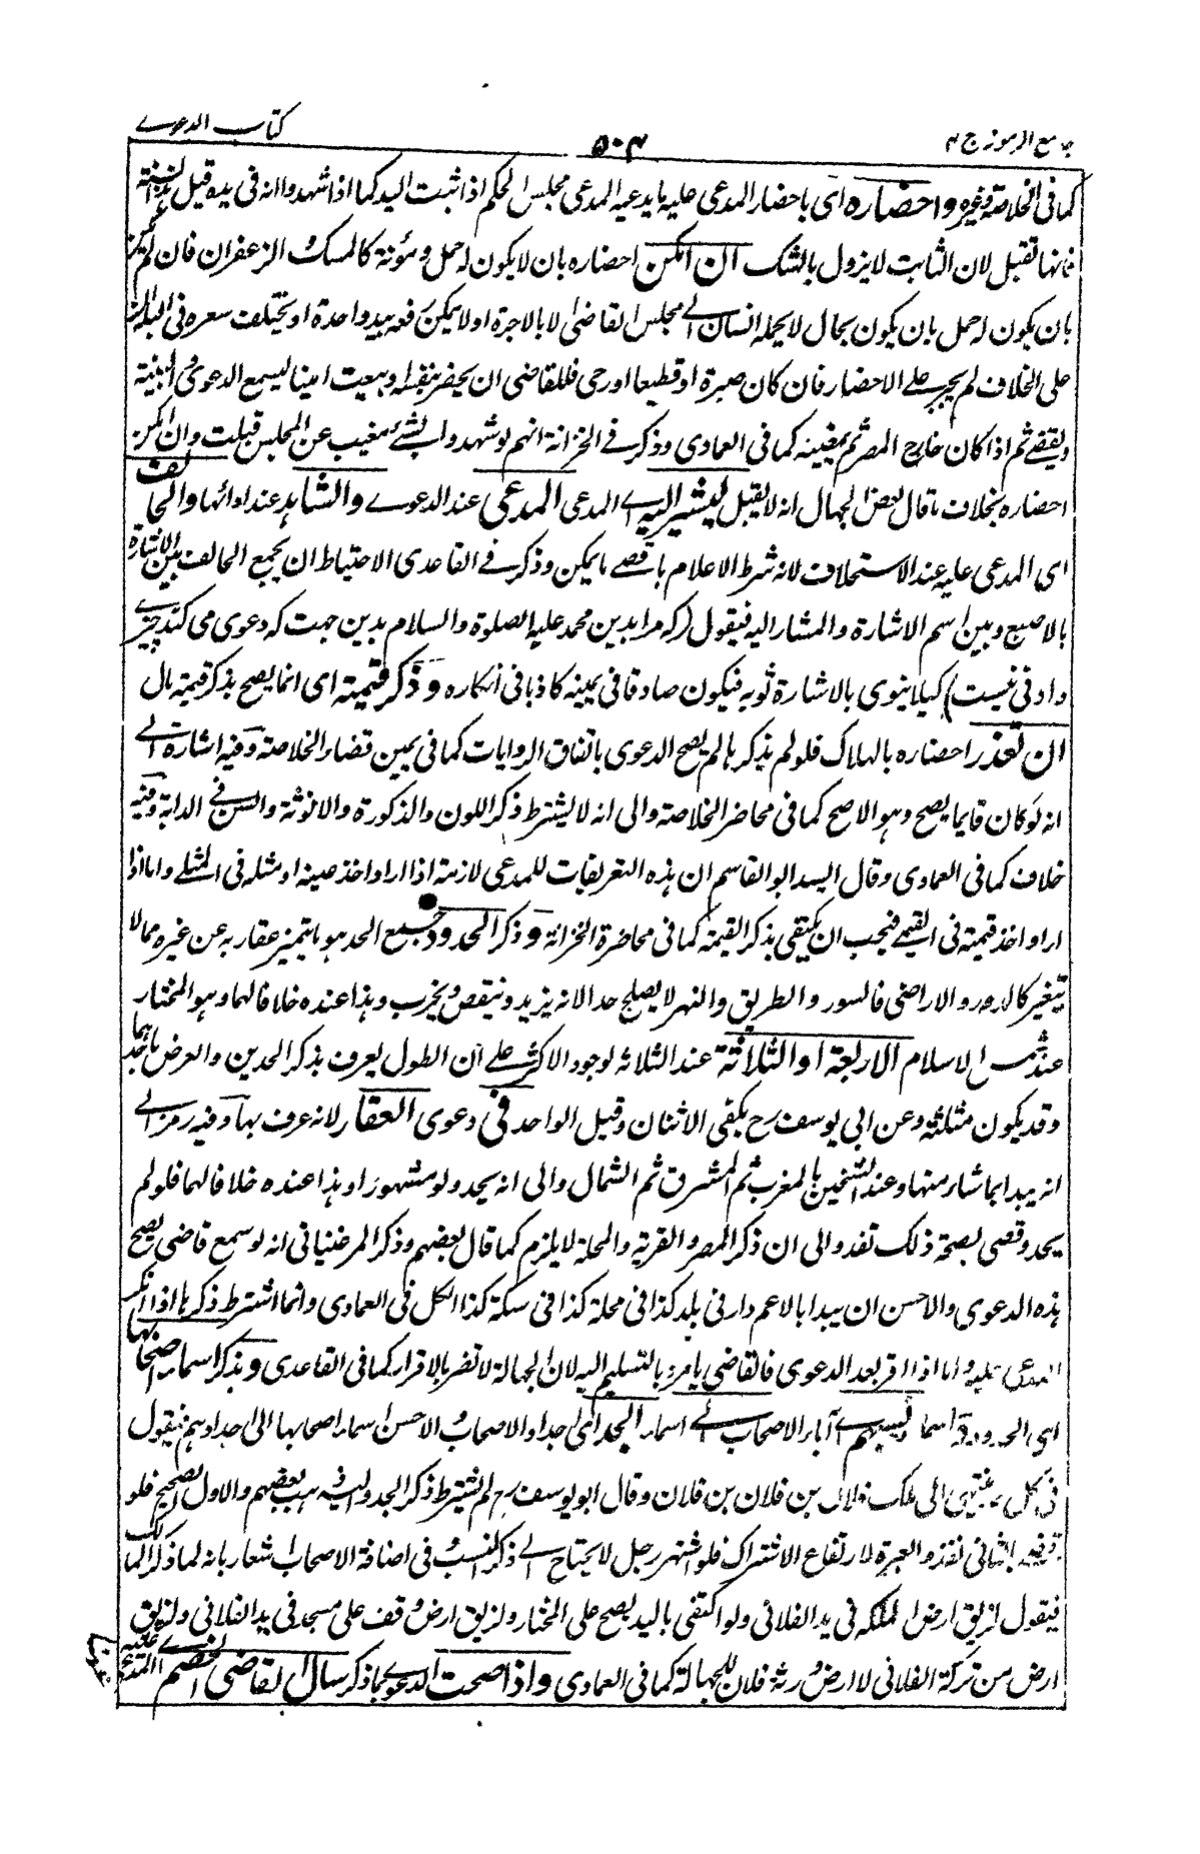 جامع الرموز ج ٣
٥٠٣
كتاب الدعوے
كما فى الخلاصة وغيره واحضاره اى باحضار المدعى عليه ما يدعيه المدعى مجلس الحكم اذا ثبت اليد كما اذا شهدوا انه فى يده قبل
فانها تقبل لان الثابت لا يزول بالشك ان امكن احضاره بان لا يكون له حمل ومؤنة كالمسك والزعفران فان لم يمكن
بان يكون له حمل بان يكون بحال لا يحمله انسان الے مجلس القاضى الا بالاجرة او لا يمكن رفعه بيد واحدة او يختلف سعره فى البلدان
على الخلاف لم يجبر على الاحضار فان كان صبرة او قطيعا او رحى فللقاضى ان يحضر بنفسه او يبعث امينا ليسمع الدعوى والبينة
ويقضے ثم اذا كان خارج المصر ثم يمضيه كما فى العمادى وذكر فے الخزانة انهم لو شهدوا بشئ مغيب عن المجلس قبلت وان امكن
احضاره بخلاف ما قال بعض الجهال انه لا يقبل ليشير اليه اے المدعى المدعى عند الدعوے والشاهد عند ادائها والحالف
اى المدعى عليه عند الاستحلاف لانه شرط الاعلام باقصے ما يمكن وذكر فے القاعدى الاحتياط ان يجمع الحالف بين الاشارة
بالاصبع وبين اسم الاشارة والمشار اليه فيقول (كه مرا بدين محمد عليه الصلوة والسلام بدين جهت كه دعوى مى كند چيزے
دادنى نيست) كيلا ينوى بالاشارة ثوبه فيكون صادقا فى يمينه كاذبا فى انكاره وذكر قيمته اى انما يصح بذكر قيمة مال
ان تعذر احضاره بالهلاك فلو لم يذكرها لم يصح الدعوى باتفاق الروايات كما فى يمين قضاء الخلاصة وفيه اشارة الے
انه لو كان قايما يصح وهو الاصح كما فى محاضر الخلاصة والى انه لا يشترط ذكر اللون والذكورة والانوثة والسن فے الدابة وفيه
خلاف كما فى العمادى وقال السيد ابو القاسم ان هذه التعريفات للمدعى لازمة اذا اراد اخذ عينه او مثله فى المثلے واما اذا
اراد اخذ قيمته فى القيمے فيجب ان يكتفى بذكر القيمة كما فى محاضرة الخزانة وذكر الحدود جميع الحد هو ما يتميز عقار به عن غيره مما لا
يتغير كالدور والاراضى فالسور والطريق والنهر لا يصلح حدا لانه يزيد وينقص ويخرب وهذا عنده خلافا لهما وهو المختار
عند شمس الاسلام الاربعة او الثلاثة عند الثلاثة لوجود الاكثر على ان الطول يعرف بذكر الحدين والعرض باحدهما
وقد يكون مثلثة وعن ابى يوسف رح يكفى الاثنان وقيل الواحد فى دعوى العقار لانه عرف بها وفيه رمز الے
انه يبدا بما شاء منها وعند الشيخين بالمغرب ثم المشرق ثم الشمال والى انه يحد ولو مشهورا وهذا عنده خلافا لهما فلو لم
يحد وقضى بصحة ذلك نفذ والى ان ذكر المصر والقرية والمحلة لا يلزم كما قال بعضهم وذكر المرغينانى انه لو سمع قاضى يصح
هذه الدعوى والاحسن ان يبدا بالاعم دار فى بلد كذا فى محلة كذا فى سكة كذا الكل فى العمادى وانما اشترط ذكرها اذا انكر
المدعى عليه واما اذا اقر بعد الدعوى فالقاضى يامره بالتسليم اليه لان الجهالة لا تضر بالاقرار كما فى القاعدى وبذكر اسماء اصحابها
اى الحدود واسماء آباء الاصحاب الے اسماء الجد اى اجداد الاصحاب والاحسن اسماء اصحابها الى اجدادهم فيقول
فى كل ينتهى الى ملك فلان بن فلان بن فلان وقال ابو يوسف رح لم يشترط ذكر الجد واليه ذهب بعضهم والاول الصحيح فلو
قضى بالثانى نفذ والعبرة لارتفاع الاشتراك فلو اشتهر رجل لا يحتاج الے ذكر النسب وفى اضافة الاصحاب اشعار بانه لما ذكر المالك
فيقول لزيق ارض المملكة فى يد الفلانى ولو اكتفى باليد يصح على المختار ولزيق ارض وقف على مسجد فى يد الفلانى ولزيق
ارض من تركة الفلانى لا ارض ورثة فلان للجهالة كما فى العمادى واذا صحت الدعوے بما ذكر سال القاضى الخصم المدعى عليه